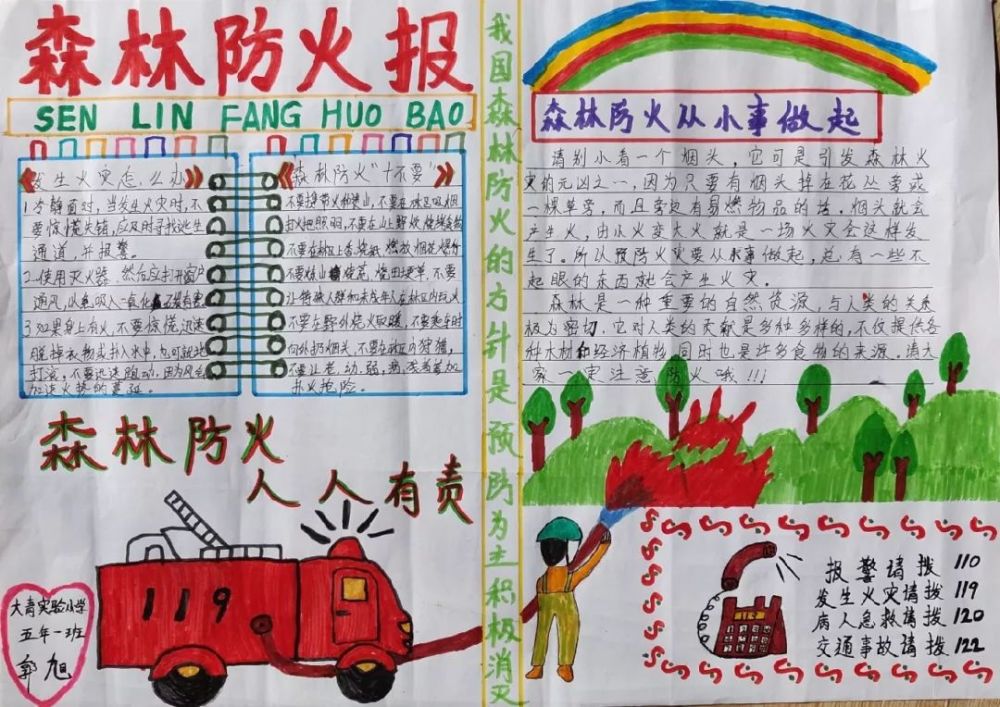 森林防火报
SEN LIN FANG HUO BAO
发生火灾怎么办
1冷静面对,当发生火灾时,不
要惊慌失错,应及时寻找逃生
通道,并报警。
2.使用灭火器,然后应打开窗户
通风,以免吸入二氧化
3如果身上有火,不要惊慌迅速
脱掉衣物或扑入水中,也可就地
打滚,不要迅速跑动,因为风会
加速火势的蔓延。
森林防火"十不要"
不要携带火种进山,不要在林区吸烟
打火把照明,不要在山上野炊烧烤食物
不要在林区上香烧纸 燃放烟花爆竹
不要炼山 烧荒 烧田埂草,不要
让特殊人群和未成年人在林区内玩火
不要在野外烧火取暖,不要乘车时
向外扔烟头,不要在林区内狩猎,
不要让老,幼,弱,病,残者参加
扑火抢险。
森林防火
人人有责
119
大青实验小学
五年一班
郭旭
我国森林防火的方针是预防为主积极消灭
森林防火从小事做起
请别小看一个烟头,它可是引发森林火
灾的元凶之一,因为只要有烟头掉在花丛旁或
一棵草旁,而且旁边有易燃物品的堆,烟头就会
产生火,由小火变大火就是一场火灾会这样发
生了。所以预防火灾要从小事做起,总有一些不
起眼的东西就会产生火灾.
森林是一种重要的自然资源,与人类的关系
极为密切.它对人类的贡献是多种多样的,不仅提供各
种木材和经济植物,同时也是许多食物的来源.请大
家一定注意防火哦!!!
报警请拨 110
发生火灾请拨 119
病人急救请拨 120
交通事故请拨 122